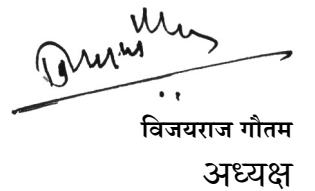 विजयराज गौतम
अध्यक्ष